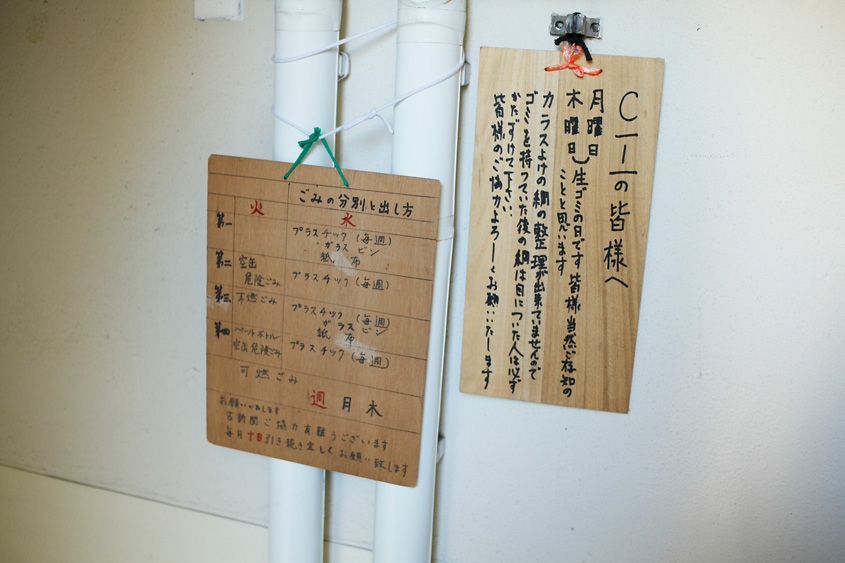 ごみの分別と出し方
火
水
第一
プラスチック(毎週)
ガラス ビン
紙 布
第二
空缶
危険ごみ
プラスチック(毎週)
第三
不燃ごみ
プラスチック(毎週)
ガラス ビン
紙 布
第四
ペットボトル
空缶危険ごみ
プラスチック(毎週)
可燃ごみ
週 月 木
お願いいたします
古新聞ご協力有難うございます
毎月十日引き続き宜しくお願い致します
C-1-1の皆様へ
月曜日
木曜日)生ゴミの日です皆様当然ご存知の
ことと思います
カラスよけの網の整理が出来てませんので
ゴミを持っていた後の網は目についた人は必ず
かたずけて下さい。
皆様のご協力よろしくお願いいたします